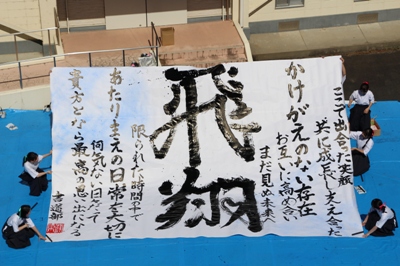 ここで出会った笑顔
共に成長し支え合った
かけがえのない存在
お互いに高め合い
まだ見ぬ未来へ
飛翔
限られた時間の中で
あたりまえの日常を大切に
何気ない日だって
貴方とならば最高の思い出になる
書道部